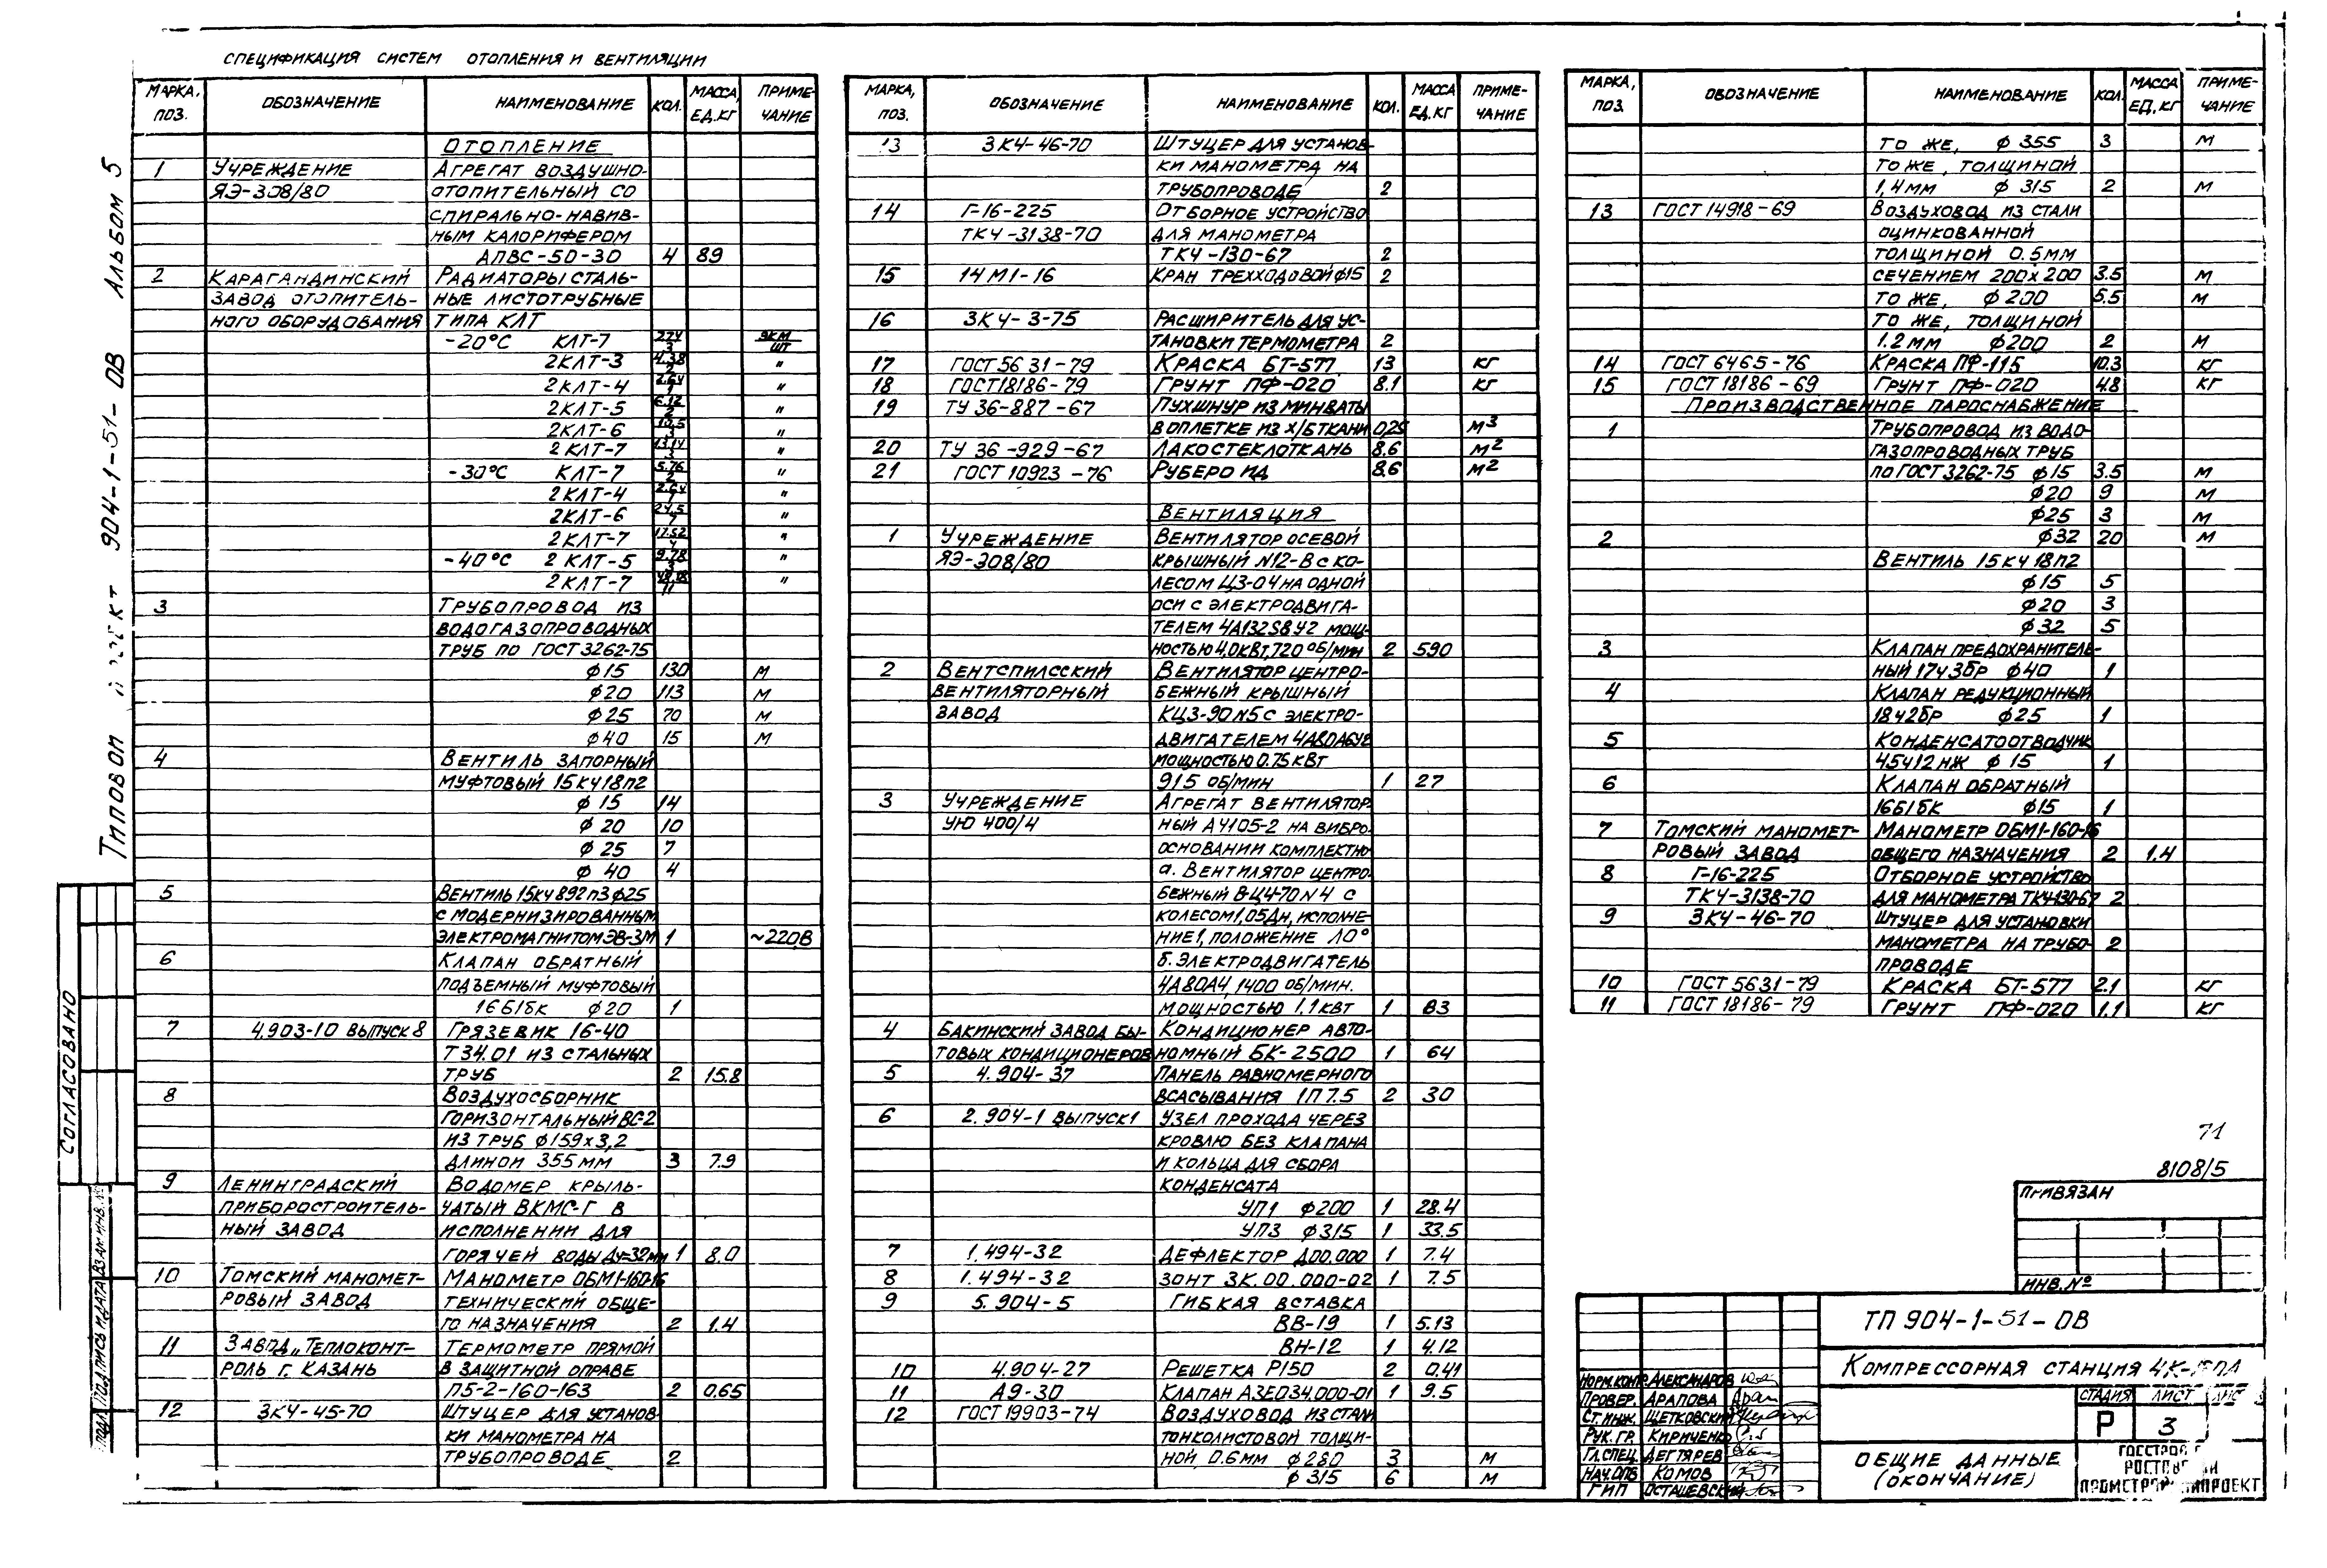 СПЕЦИФИКАЦИЯ СИСТЕМ ОТОПЛЕНИЯ И ВЕНТИЛЯЦИИ
МАРКА, ПОЗ. ОБОЗНАЧЕНИЕ НАИМЕНОВАНИЕ КОЛ. МАССА, ЕД.КГ ПРИМЕЧАНИЕ
ОТОПЛЕНИЕ
1 УЧРЕЖДЕНИЕ АГРЕГАТ ВОЗДУШНО-
ЯЭ-308/80 ОТОПИТЕЛЬНЫЙ СО
СПИРАЛЬНО-НАВИВ-
НЫМ КАЛОРИФЕРОМ
АПВС-50-30 4 89
2 КАРАГАНДИНСКИЙ РАДИАТОРЫ СТАЛЬ-
ЗАВОД ОТОПИТЕЛЬ- НЫЕ ЛИСТОТРУБНЫЕ
НОГО ОБОРУДОВАНИЯ ТИПА КЛТ
-20°С КЛТ-7 ЭКМ/ШТ
2КЛТ-3 4.38/2 "
2КЛТ-4 2.64/1 "
2КЛТ-5 6.12/2 "
2КЛТ-6 10.5/3 "
2КЛТ-7 13.14/3 "
-30°С КЛТ-7 5.76/2 "
2КЛТ-4 2.64/1 "
2КЛТ-6 24.5/7 "
2КЛТ-7 17.52/4 "
-40°С 2КЛТ-5 9.78/3 "
2КЛТ-7 48.18/11 "
3 ТРУБОПРОВОД ИЗ
ВОДОГАЗОПРОВОДНЫХ
ТРУБ ПО ГОСТ 3262-75
ф15 130 М
ф20 113 М
ф25 70 М
ф40 15 М
4 ВЕНТИЛЬ ЗАПОРНЫЙ
МУФТОВЫЙ 15кч18п2
ф 15 14
ф 20 10
ф 25 7
ф 40 4
5 ВЕНТИЛЬ 15кч 892п3 ф25
С МОДЕРНИЗИРОВАННЫМ
ЭЛЕКТРОМАГНИТОМ ЭВ-3М 1 ~220В
6 КЛАПАН ОБРАТНЫЙ
ПОДЪЕМНЫЙ МУФТОВЫЙ
16Б1бк ф20 1
7 4.903-10 ВЫПУСК 8 ГРЯЗЕВИК 16-40
Т34.01 ИЗ СТАЛЬНЫХ
ТРУБ 2 15.8
8 ВОЗДУХОСБОРНИК
ГОРИЗОНТАЛЬНЫЙ ВС-2
ИЗ ТРУБ ф159х3,2
ДЛИНОЙ 355мм 3 7.9
9 ЛЕНИНГРАДСКИЙ ВОДОМЕР КРЫЛЬ-
ПРИБОРОСТРОИТЕЛЬ- ЧАТЫЙ ВКМС-Г В
НЫЙ ЗАВОД ИСПОЛНЕНИИ ДЛЯ
ГОРЯЧЕЙ ВОДЫ Ду=32мм 1 8.0
10 ТОМСКИЙ МАНОМЕТ- МАНОМЕТР ОБМ1-160-16
РОВЫЙ ЗАВОД ТЕХНИЧЕСКИЙ ОБЩЕ-
ГО НАЗНАЧЕНИЯ 2 1.4
11 ЗАВОД „ТЕПЛОКОНТ- ТЕРМОМЕТР ПРЯМОЙ
РОЛЬ Г. КАЗАНЬ В ЗАЩИТНОЙ ОПРАВЕ
П5-2-160-163 2 0.65
12 ЗК4-45-70 ШТУЦЕР ДЛЯ УСТАНОВ-
КИ МАНОМЕТРА НА
ТРУБОПРОВОДЕ 2
МАРКА, ПОЗ. ОБОЗНАЧЕНИЕ НАИМЕНОВАНИЕ КОЛ. МАССА ЕД.КГ ПРИМЕЧАНИЕ
13 ЗК4-46-70 ШТУЦЕР ДЛЯ УСТАНОВ-
КИ МАНОМЕТРА НА
ТРУБОПРОВОДЕ 2
14 Г-16-225 ОТБОРНОЕ УСТРОЙСТВО
ТК4-3138-70 ДЛЯ МАНОМЕТРА
ТК4-130-67 2
15 14М1-16 КРАН ТРЕХХОДОВОЙ ф15 2
16 ЗК4-3-75 РАСШИРИТЕЛЬ ДЛЯ УС-
ТАНОВКИ ТЕРМОМЕТРА 2
17 ГОСТ 5631-79 КРАСКА БТ-577 13 КГ
18 ГОСТ 18186-79 ГРУНТ ПФ-020 8.1 КГ
19 ТУ 36-887-67 ПУХШНУР ИЗ МИНВАТЫ
В ОПЛЕТКЕ ИЗ Х/Б ТКАНИ 0,25 М3
20 ТУ 36-929-67 ЛАКОСТЕКЛОТКАНЬ 8.6 М2
21 ГОСТ 10923-76 РУБЕРОИД 8.6 М2
ВЕНТИЛЯЦИЯ
1 УЧРЕЖДЕНИЕ ВЕНТИЛЯТОР ОСЕВОЙ
ЯЭ-308/80 КРЫШНЫЙ N12-В С КО-
ЛЕСОМ ЦЗ-04 НА ОДНОЙ
ОСИ С ЭЛЕКТРОДВИГА-
ТЕЛЕМ 4А132S8У2 МОЩ-
НОСТЬЮ 4,0КВТ, 720 ОБ/МИН 2 590
2 ВЕНТСПИЛССКИЙ ВЕНТИЛЯТОР ЦЕНТРО-
ВЕНТИЛЯТОРНЫЙ БЕЖНЫЙ КРЫШНЫЙ
ЗАВОД КЦЗ-90 N5 С ЭЛЕКТРО-
ДВИГАТЕЛЕМ 4А80А6У2
МОЩНОСТЬЮ 0.75 КВТ
915 ОБ/МИН 1 27
3 УЧРЕЖДЕНИЕ АГРЕГАТ ВЕНТИЛЯТОР
УЮ 400/4 НЫЙ А4105-2 НА ВИБРО-
ОСНОВАНИИ КОМПЛЕКТНО
а. ВЕНТИЛЯТОР ЦЕНТРО-
БЕЖНЫЙ В-Ц4-70 N4 С
КОЛЕСОМ 1,05Дн, ИСПОЛНЕ-
НИЕ 1, ПОЛОЖЕНИЕ Л0°
б. ЭЛЕКТРОДВИГАТЕЛЬ
4А80А4, 1400 ОБ/МИН.
МОЩНОСТЬЮ 1.1 КВТ 1 83
4 БАКИНСКИЙ ЗАВОД БЫ- КОНДИЦИОНЕР АВТО-
ТОВЫХ КОНДИЦИОНЕРОВ НОМНЫЙ БК-2500 1 64
5 4.904-37 ПАНЕЛЬ РАВНОМЕРНОГО
ВСАСЫВАНИЯ 1П 7.5 2 30
6 2.904-1 ВЫПУСК 1 УЗЕЛ ПРОХОДА ЧЕРЕЗ
КРОВЛЮ БЕЗ КЛАПАНА
И КОЛЬЦА ДЛЯ СБОРА
КОНДЕНСАТА
УП1 ф200 1 28.4
УП3 ф315 1 33.5
7 1.494-32 ДЕФЛЕКТОР Д00.000 1 7.4
8 1.494-32 ЗОНТ ЗК.00.000-02 1 7.5
9 5.904-5 ГИБКАЯ ВСТАВКА
ВВ-19 1 5.13
ВН-12 1 4.12
10 4.904-27 РЕШЕТКА Р150 2 0.41
11 А9-30 КЛАПАН АЗЕ034.000-01 1 9.5
12 ГОСТ 19903-74 ВОЗДУХОВОД ИЗ СТАЛИ
ТОНКОЛИСТОВОЙ ТОЛЩИ-
НОЙ 0.6мм ф280 3 М
ф315 6 М
МАРКА, ПОЗ. ОБОЗНАЧЕНИЕ НАИМЕНОВАНИЕ КОЛ. МАССА ЕД.КГ ПРИМЕЧАНИЕ
ТО ЖЕ, ф 355 3 М
ТО ЖЕ, ТОЛЩИНОЙ
1,4мм ф 315 2 М
13 ГОСТ 14918-69 ВОЗДУХОВОД ИЗ СТАЛИ
ОЦИНКОВАННОЙ
ТОЛЩИНОЙ 0.5мм
СЕЧЕНИЕМ 200х200 3.5 М
ТО ЖЕ, ф200 5.5 М
ТО ЖЕ, ТОЛЩИНОЙ
1.2мм ф200 2 М
14 ГОСТ 6465-76 КРАСКА ПФ-115 10.3 КГ
15 ГОСТ 18186-69 ГРУНТ ПФ-020 4.8 КГ
ПРОИЗВОДСТВЕННОЕ ПАРОСНАБЖЕНИЕ
1 ТРУБОПРОВОД ИЗ ВОДО-
ГАЗОПРОВОДНЫХ ТРУБ
ПО ГОСТ 3262-75 ф15 3.5 М
ф20 9 М
ф25 3 М
2 ф32 20 М
ВЕНТИЛЬ 15кч 18п2
ф15 5
ф20 3
ф32 5
3 КЛАПАН ПРЕДОХРАНИТЕЛЬ-
НЫЙ 17ч3бр ф40 1
4 КЛАПАН РЕДУКЦИОННЫЙ
18ч2бр ф25 1
5 КОНДЕНСАТООТВОДЧИК
45ч12нж ф 15 1
6 КЛАПАН ОБРАТНЫЙ
16Б1бк ф15 1
7 ТОМСКИЙ МАНОМЕТ- МАНОМЕТР ОБМ1-160-16
РОВЫЙ ЗАВОД ОБЩЕГО НАЗНАЧЕНИЯ 2 1.4
8 Г-16-225 ОТБОРНОЕ УСТРОЙСТВО
ТК4-3138-70 ДЛЯ МАНОМЕТРА ТК4-130-67 2
9 ЗК4-46-70 ШТУЦЕР ДЛЯ УСТАНОВКИ
МАНОМЕТРА НА ТРУБО- 2
ПРОВОДЕ
10 ГОСТ 5631-79 КРАСКА БТ-577 2.1 КГ
11 ГОСТ 18186-79 ГРУНТ ПФ-020 1.1 КГ
71
8108/5
ПРИВЯЗАН
ИНВ.№
ТП 904-1-51-ОВ
КОМПРЕССОРНАЯ СТАНЦИЯ
СТАДИЯ ЛИСТ
Р 3
ОБЩИЕ ДАННЫЕ
(ОКОНЧАНИЕ)
НОРМ.КОНТР. АЛЕКСАНДРОВ
ПРОВЕР. АРАПОВА
СТ.ИНЖ. ЩЕТКОВСКИЙ
РУК. ГР. КИРИЧЕНКО
ГЛ.СПЕЦ. ДЕГТЯРЕВ
НАЧ.ОПВ КОМОВ
ГИП ОСТАШЕВСКИЙ
904-1-51-ОВ АЛЬБОМ 5
СОГЛАСОВАНО
ВЗАМ.ИНВ.№
ПОДПИСЬ И ДАТА